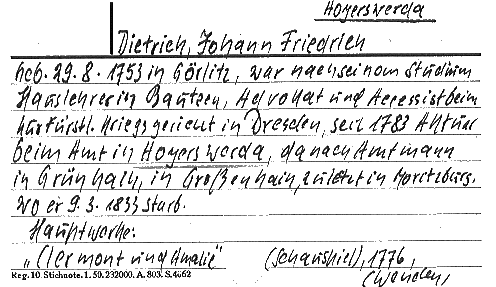 Hoyerswerda
Dietrich, Johann Friedrich
geb. 29.8.1753 in Görlitz, war nach seinem Studium
Hauslehrer in Bautzen, Advokat und Accessist beim
kurfürstl. Kriegsgericht in Dresden, seit 1783 Aktuar
beim Amt in Hoyerswerda, danach Amtmann
in Grünhain, in Großenhain, zuletzt in Moritzburg.
wo er 9.3.1833 starb.
Hauptwerke:
„Clermont und Amalie" (Schauspiel), 1776,
Reg. 10 Stichnote. 1. 50. 232000. A. 803. S. 4062
(Wenden,